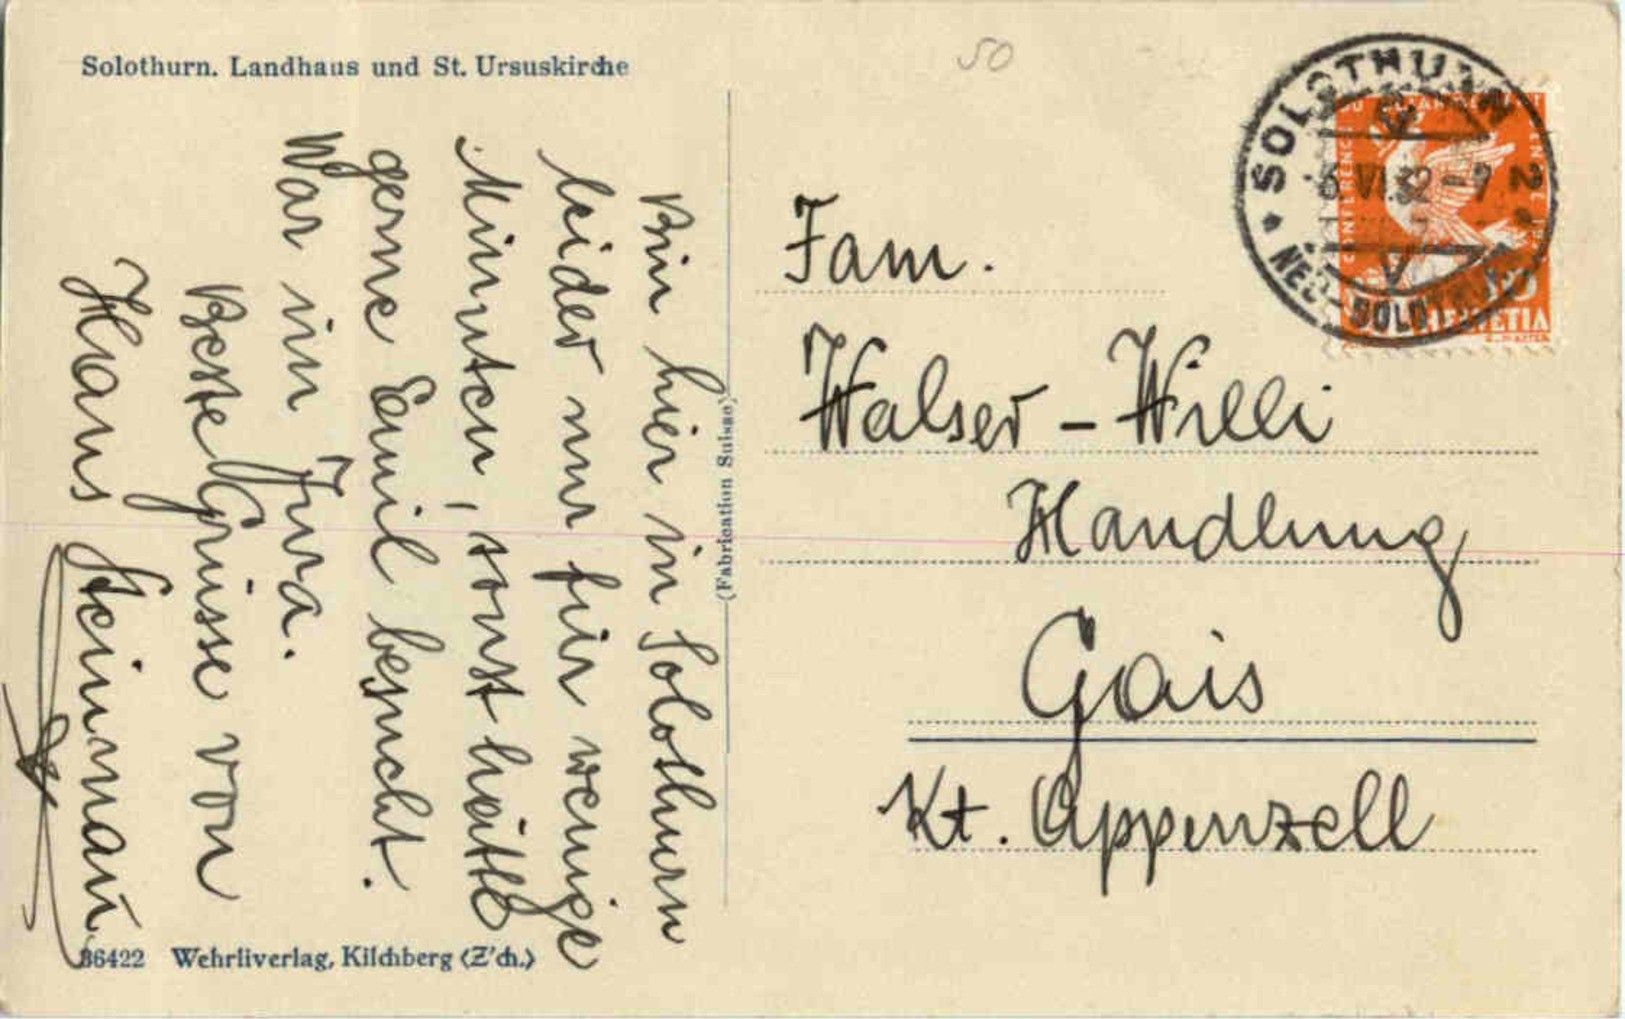 Solothurn. Landhaus und St. Ursuskirche
50
Bin hier in Solothurn
leider nur für wenige
Minuten, sonst hätte
gerne Emil besucht.
War im Jura.
Beste Grüsse von
Hans Steinmann
(Fabrication Suisse)
36422 Wehrliverlag, Kilchberg (Z'ch.)
SOLOTHURN 2
6 VI 32 - 7
NEU-SOLOTHURN
HELVETIA
Fam.
Walser - Willi
Handlung
Gais
Kt. Appenzell